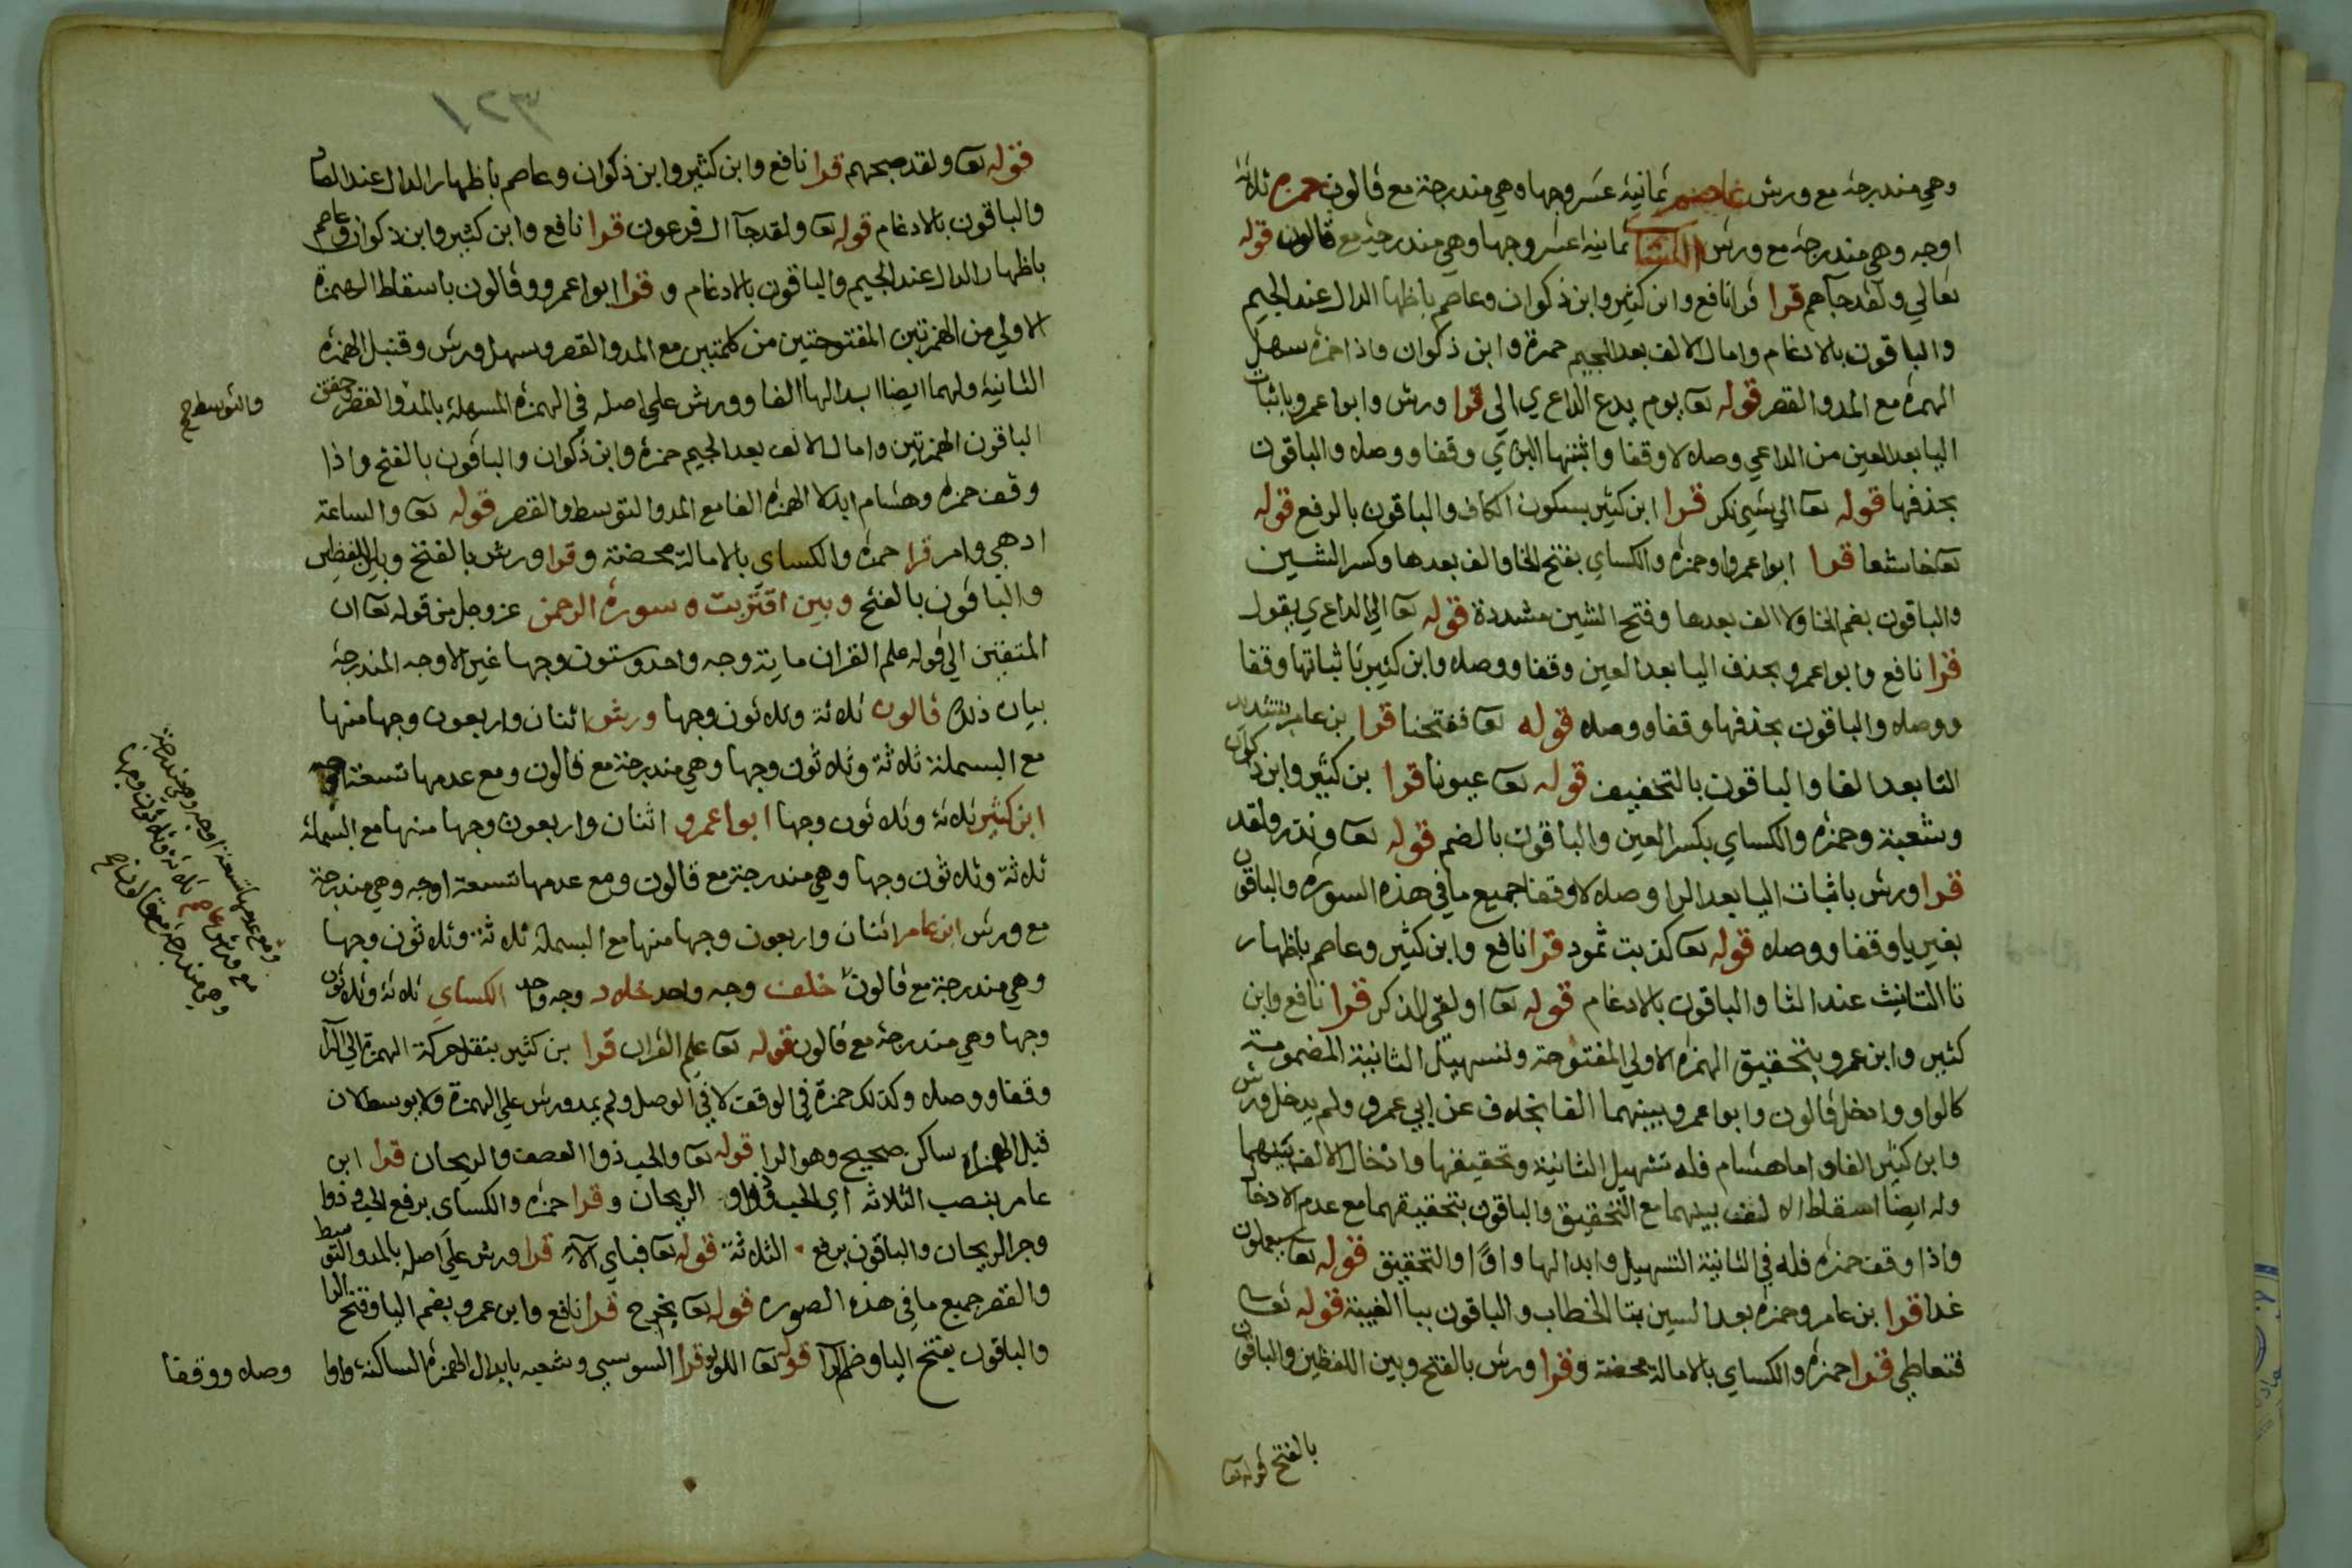 وهي مندرجة مع ورش عاصم ثمانية عشر وجها وهي مندرجة مع قالون حمزة ثلاثة
اوجه وهي مندرجة مع ورش الكسائي ثمانية اعشر وجها وهي مندرجة مع قالون قوله
تعالي ولقد جآهم قرا قرا نافع وابن كثير وابن ذكوان وعاصم باظهار الدال عند الجيم
والباقون بالادغام وامال الالف بعد الجيم حمزة وابن ذكوان واذا حمزه سهل
الهمزة مع المد والقصر قوله تعا يوم يدع الداع ي الي قرا ورش وابوا عمرو باثبات
اليا بعد العين من الداعي وصلا لا وقفا واثبتها البزي وقفا ووصلا والباقون
بحذفها قوله تعا الي شي نكر قرا ابن كثير بسكون الكاف والباقون بالرفع قوله
تعا خاشعا قرا ابوا عمرو وحمزه والكساي بفتح الخا والف بعدها وكسر الشين
والباقون بضم الخا ولا الف بعدها وفتح الشين مشددة قوله تعا الي الداع ي يقول
قرا نافع وابو عمرو بحذف اليا بعد العين وقفا ووصلا وابن كثير باثباتها وقفا
ووصلا والباقون بحذفها وقفا ووصلا قوله تعا ففتحنا قرا بن عامر بتشديد
التا بعد الفا والباقون بالتخفيف قوله تعا عيونا قرا بن كثير وابن ذكوان
وشعبة وحمزه والكساي بكسر العين والباقون بالضم قوله تعا ونذر ولقد
قرا ورش باثبات اليا بعد الرا وصلا لا وقفا جميع ما في هذه السورة والباقون
بغير يا وقفا ووصلا قوله تعا كذبت ثمود قرا نافع وابن كثير وعاصم باظهار
تا التانيث عند الثا والباقون بالادغام قوله تعا اولقي الذكر قرا نافع وابن
كثير وابن عمرو بتحقيق الهمزه الاولي المفتوحة ولتسهيل الثانية المضمومة
كالواو وادخل قالون وابوا عمرو بينهما الفا بخلاف عن ابي عمرو ولم يدخل ورش
وابن كثير الفا واما هشام فله تسهيل الثانية وتحقيقها وادخال الالف بينهما
وله ايضا اسقاط الالف بينهما مع التحقيق والباقون بتحقيقهما مع عدم الادخال
واذا وقف حمزه فله في الثانية التسهيل وابدالها واوا والتحقيق قوله تعا سيعلمون
غدا قرا بن عامر وحمزه بعد السين بتا الخطاب والباقون بيا الغيبة قوله تعالي
فتعاطي قرا حمزه والكساي بالامالة محضة وقرا ورش بالفتح وبين اللفظين والباقون
بالفتح قوله تعا
٣٢١
قوله تعا ولقد صبحهم قرا نافع وابن كثير وابن ذكوان وعاصم باظهار الدال عند الصاد
والباقون بالادغام قوله تعا ولقد جآ ال فرعون قرا نافع وابن كثير وابن ذكوان وعاصم
باظهار الدال عند الجيم والباقون بالادغام و قرا ابوا عمرو وقالون باسقاط الهمزة
الاولي من الهمزتين المفتوحتين من كلمتين مع المد والقصر وسهل ورش وقنبل الهمزه
الثانية ولهما ايضا ابدالها الفا وورش علي اصله في الهمزه المسهلة بالمد والقصر وحقق
والتوسط صح
الباقون الهمزتين وامال الالف بعد الجيم حمزه وابن ذكوان والباقون بالفتح واذا
وقف حمزه وهشام ابدلا الهمزه الفا مع المد والتوسط والقصر قوله تعا والساعة
ادهي وامر قرا حمزه والكساي بالامالة محضة وقرا ورش بالفتح وبين اللفظين
والباقون بالفتح وبين اقتربت ه سورة الرحمن عز وجل من قوله تعا ان
المتقين الي قوله علم القران ماية وجه واحد وستون وجها غير الاوجه المندرجة
بيان ذلك قالون ثلاثة وثلاثون وجها ورش اثنان واربعون وجها منها
مع البسملة ثلاثة وثلاثون وجها وهي مندرجة مع قالون ومع عدمها تسعة اوجه
ابن كثير ثلاثة وثلاثون وجها ابوا عمرو اثنان واربعون وجها منها مع البسملة
ثلاثة وثلاثون وجها وهي مندرجة مع قالون ومع عدمها تسعة اوجه وهي مندرجة
مع ورش ابن عامر اثنان واربعون وجها منها مع البسملة ثلاثة وثلاثون وجها
وهي مندرجة مع قالون خلف وجه واحد خلاد وجه واحد الكساي ثلاثة وثلاثون
ومع عدمها تسعة اوجه وهي مندرجة
مع ورش عاصم ثلاثة وثلاثون وجها
وهي مندرجة مع قالون صح
وجها وهي مندرجة مع قالون قوله تعا علم القران قرا بن كثير بنقل حركة الهمزة الي الرا
وقفا ووصلا وكذلك حمزة في الوقف لا في الوصل ولم يمد ورش علي الهمزة ولا يوسط لان
قبل الهمزة ساكن صحيح وهو الرا قوله تعا والحب ذوا العصف والريحان قرا ابن
عامر بنصب الثلاثة اي الحب وذوا و الريحان وقرا حمزه والكساي برفع الحب وذوا
وجر الريحان والباقون برفع الثلاثة قوله تعا فباي الآء قرا ورش علي اصله بالمد والتوسط
والقصر جميع ما في هذه الصوره قوله تعا يخرج قرا نافع وابن عمرو بضم اليا وفتح الرا
والباقون بفتح اليا وضم الرا قوله تعا اللولو قرا السوسي وشعبه بابدال الهمزه الساكنة واوا
وصلا ووقفا